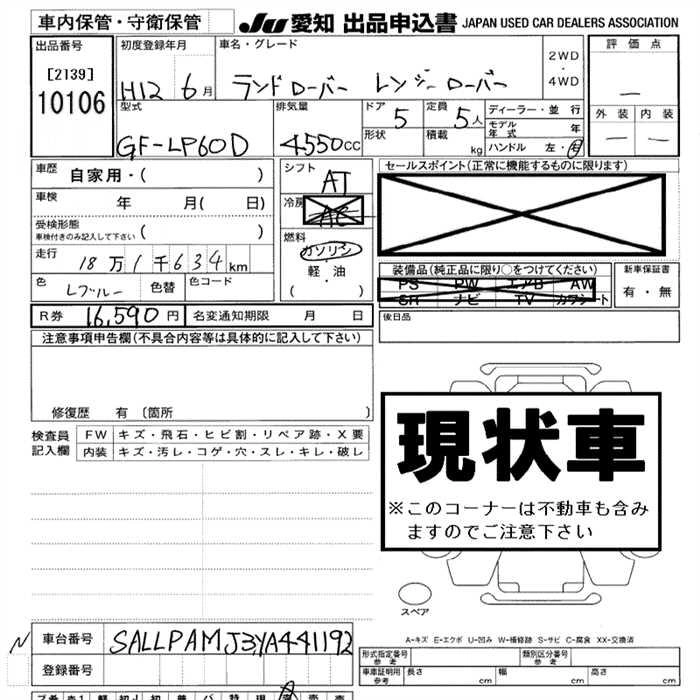 車内保管・守衛保管 JU 愛知 出品申込書 JAPAN USED CAR DEALERS ASSOCIATION
出品番号 初度登録年月 車名・グレード 評価点
[2139] H12 6月 ランドローバー レンジローバー 2WD・4WD —
10106 型式 排気量 ドア 定員 ディーラー・並行 外装 内装
GF-LP60D 4550cc 5 5人 モデル年式 年 — —
形状 積載 kg ハンドル 左・右
車歴 自家用・( ) シフト AT セールスポイント(正常に機能するものに限ります)
車検 年 月( 日) 冷房 AC
受検形態 車検付きのみ記入して下さい ( ) 燃料 ガソリン
走行 18万1千634km 軽・油 装備品(純正品に限り○をつけてください) 新車保証書
色 Lブルー 色替 色コード ( ) PS PW エアB AW 有・無
SR ナビ TV カワシート
R券 16,590円 名変通知期限 月 日 後日品
注意事項申告欄(不具合内容等は具体的に記入して下さい)
修復歴 有 〔箇所 〕
現状車
※このコーナーは不動車も含みますのでご注意下さい
検査員記入欄 FW キズ・飛石・ヒビ割・リペア跡・X要
内装 キズ・汚レ・コゲ・穴・スレ・キレ・破レ
スペア
A-キズ E-エクボ U-凹み W-補修跡 S-サビ C-腐食 XX-交換済
N 車台番号 SALLPAMJ3YA441192
登録番号
形式指定番号 参考 類別区分番号 参考
車庫証明用 参考 長さ cm 幅 cm 高さ cm